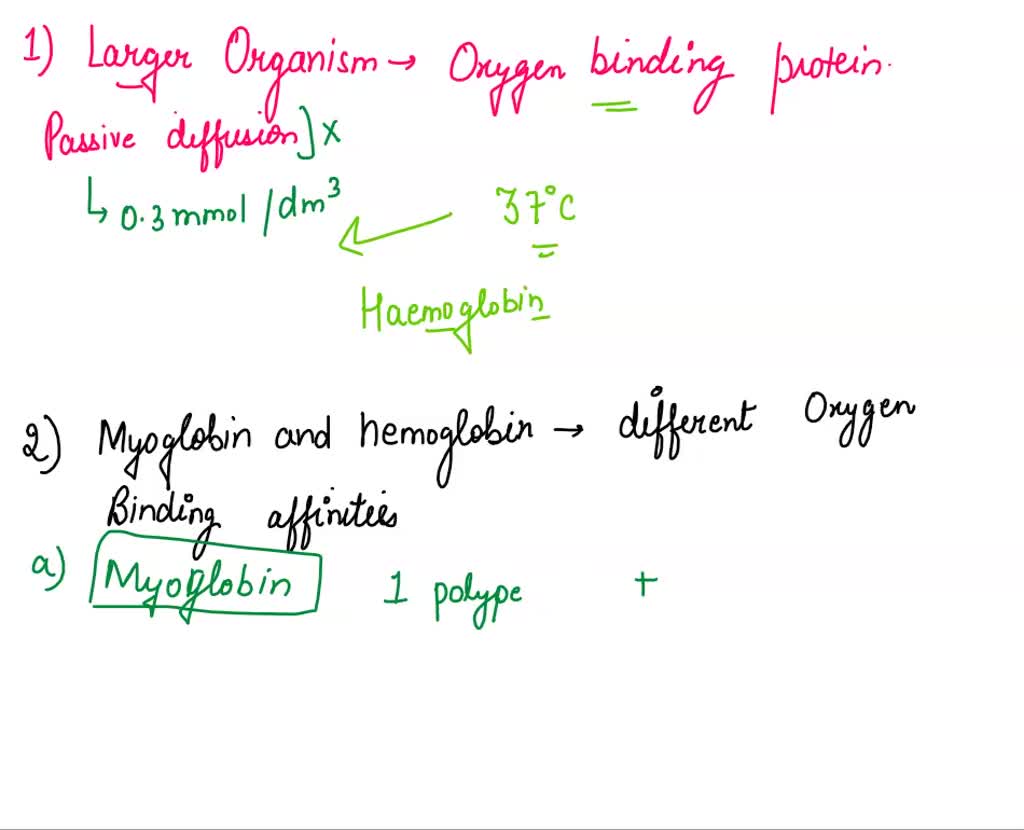 1) Larger Organism → Oxygen binding protein.
Passive diffusion] x
↳ 0.3 mmol / dm³ ← 37°C
Haemoglobin
2) Myoglobin and hemoglobin → different Oxygen
Binding affinities
a) Myoglobin 1 polype +